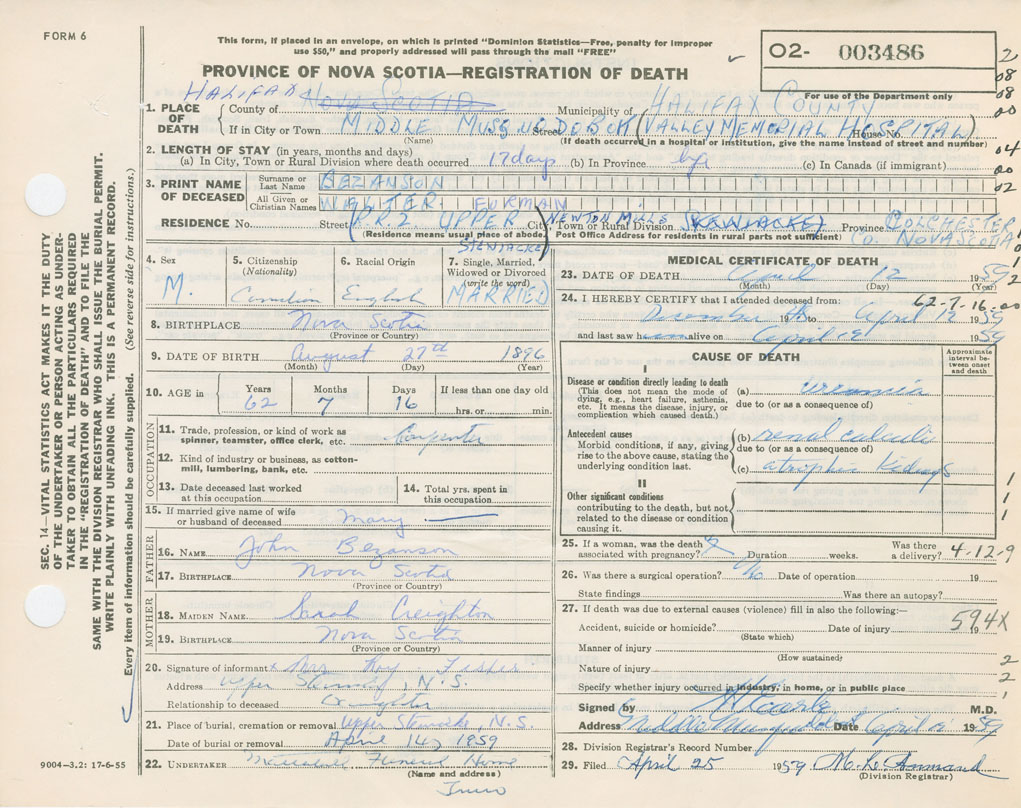 FORM 6
This form, if placed in an envelope, on which is printed "Dominion Statistics—Free, penalty for improper
use $50," and properly addressed will pass through the mail "FREE"
PROVINCE OF NOVA SCOTIA—REGISTRATION OF DEATH
O2- 003486
For use of the Department only
2
08
08
00
04
00
02
SEC. 14—VITAL STATISTICS ACT MAKES IT THE DUTY
OF THE UNDERTAKER OR PERSON ACTING AS UNDER-
TAKER TO OBTAIN ALL THE PARTICULARS REQUIRED
IN THE "REGISTRATION OF DEATH" AND TO FILE THE
SAME WITH THE DIVISION REGISTRAR WHO SHALL ISSUE THE BURIAL PERMIT.
WRITE PLAINLY WITH UNFADING INK. THIS IS A PERMANENT RECORD.
Every item of information should be carefully supplied. (See reverse side for instructions.)
HALIFAX
1. PLACE OF DEATH County of NOVA SCOTIA Municipality of HALIFAX COUNTY
If in City or Town MIDDLE MUSQUODOBOIT Street (VALLEY MEMORIAL HOSPITAL) House No.
(Name) (If death occurred in a hospital or institution, give the name instead of street and number)
2. LENGTH OF STAY (in years, months and days)
(a) In City, Town or Rural Division where death occurred 17 days (b) In Province life (c) In Canada (if immigrant)
3. PRINT NAME OF DECEASED Surname or Last Name BEZANSON
All Given or Christian Names WALTER FURMAN
RESIDENCE No. Street (RR2 UPPER STEWIACKE) City, Town or Rural Division NEWTON MILLS (STEWIACKE) Province COLCHESTER CO. NOVA SCOTIA
(Residence means usual place of abode. Post Office Address for residents in rural parts not sufficient)
4. Sex M.
5. Citizenship (Nationality) Canadian
6. Racial Origin English
7. Single, Married, Widowed or Divorced (write the word) MARRIED
8. BIRTHPLACE Nova Scotia
(Province or Country)
9. DATE OF BIRTH August 27th 1896
(Month) (Day) (Year)
10. AGE in Years 62 Months 7 Days 16 If less than one day old
hrs. or min.
OCCUPATION
11. Trade, profession, or kind of work as spinner, teamster, office clerk, etc. Carpenter
12. Kind of industry or business, as cotton-mill, lumbering, bank, etc.
13. Date deceased last worked at this occupation
14. Total yrs. spent in this occupation
15. If married give name of wife or husband of deceased Mary
FATHER
16. NAME John Bezanson
17. BIRTHPLACE Nova Scotia
(Province or Country)
MOTHER
18. MAIDEN NAME Sarah Creighton
19. BIRTHPLACE Nova Scotia
(Province or Country)
20. Signature of informant x Mrs Roy Fisher
Address Upper Stewiacke, N.S.
Relationship to deceased
21. Place of burial, cremation or removal Upper Stewiacke, N.S.
Date of burial or removal April 14, 1959
22. UNDERTAKER Funeral Home
(Name and address)
Truro
9004-3.2: 17-6-55
MEDICAL CERTIFICATE OF DEATH
23. DATE OF DEATH April 12 1959
(Month) (Day) (Year)
24. I HEREBY CERTIFY that I attended deceased from: 62-7-16-00
December to April 12 1959
and last saw h alive on April 12 1959
CAUSE OF DEATH
Approximate interval between onset and death
I
Disease or condition directly leading to death
(This does not mean the mode of dying, e.g., heart failure, asthenia, etc. It means the disease, injury, or complication which caused death.)
(a) uraemia
due to (or as a consequence of)
Antecedent causes
Morbid conditions, if any, giving rise to the above cause, stating the underlying condition last.
(b) renal calculi
due to (or as a consequence of)
(c) atrophic Kidneys
II
Other significant conditions
contributing to the death, but not related to the disease or condition causing it.
25. If a woman, was the death associated with pregnancy? Duration weeks. Was there a delivery? 4-12-9
26. Was there a surgical operation? No Date of operation 19
State findings Was there an autopsy?
27. If death was due to external causes (violence) fill in also the following:—
Accident, suicide or homicide? Date of injury 19 594X
(State which)
Manner of injury
(How sustained)
Nature of injury
Specify whether injury occurred in industry, in home, or in public place
Signed by M.D.
Address Middle Musquodoboit Date April 1959
28. Division Registrar's Record Number
29. Filed April 25 1959
(Division Registrar)